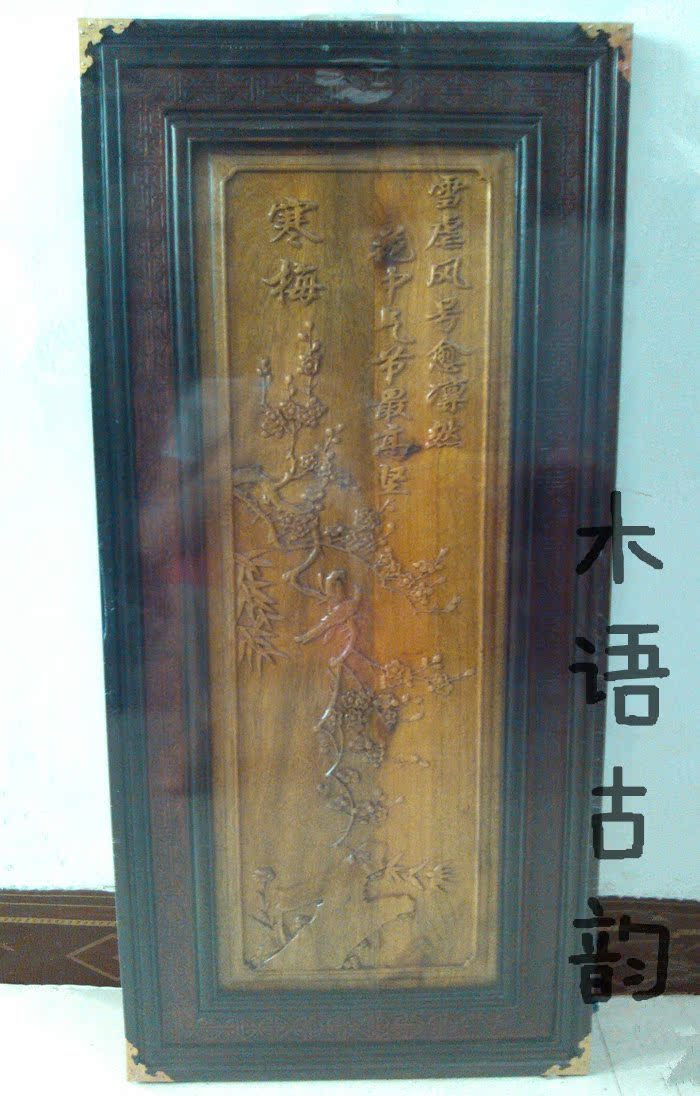 雪虐风号愈凛然
花中气节最高坚
寒梅
木语古韵